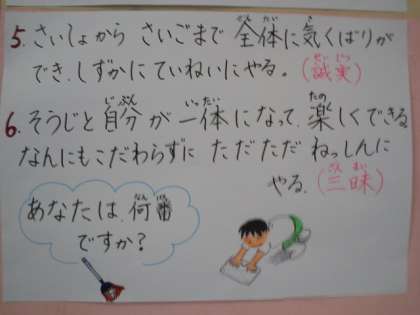 5. さいしょから さいごまで 全体に気くばりが
でき、しずかにていねいにやる。(誠実)
6. そうじと自分が一体になって、楽しくできる
なんにもこだわらずに ただただ ねっしんに
やる。(三昧)
あなたは、何番
ですか?